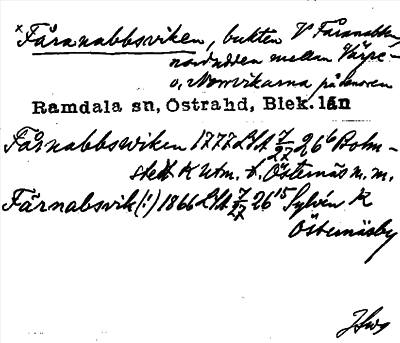 × Fåranabbsviken, bukten V Fåranabben,
nordudden mellan Värpe-
o. Norrvikarna på Senoren
Ramdala sn, Östrahd, Blek. län
Fårnabbswiken 1777 LSA 7/27 26⁶ Bohm-
stedt K Utm. t. Östernäs m. m.
Fårnabsvik (!) 1866 LSA 7/27 26¹⁵ Sylvén K
Östernäsby